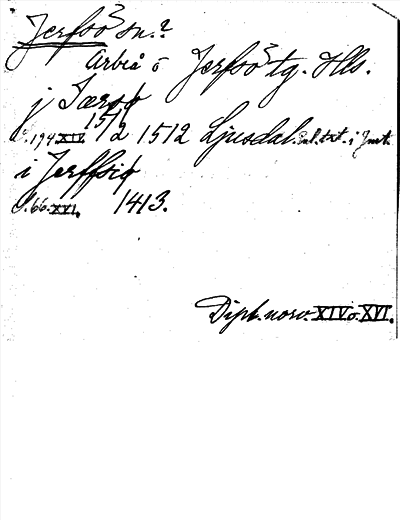 Jerfsö 3 sn.?
Arbrå o Jerfsö 3 tg. Hls.
j Jærsø
s. 194 XIV. 1512 1512 Ljusdal. Enl. txt. i Jmt.
i Jerffsiø
s. 66. XVI. 1413.
Dipl. norv. XIV o. XVI.